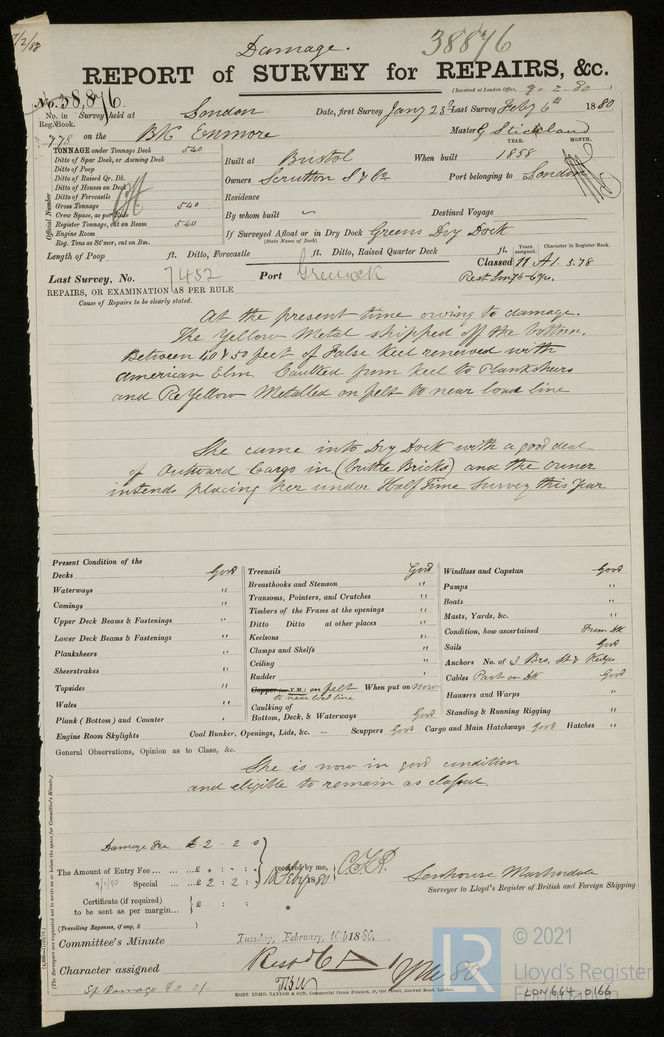 7/2/88
Damage.
38876
REPORT of SURVEY for REPAIRS, &c.
(Received at London Office, 9-2-80)
No. 38,876.
No. in Reg. Book. Survey held at London Date, first Survey Jany 23rd Last Survey Feby 6th 1880
778 on the BK Enmore Master G Stickland
TONNAGE under Tonnage Deck 540
Ditto of Spar Deck, or Awning Deck
Ditto of Poop
Ditto of Raised Qr. Dk.
Ditto of Houses on Deck
Ditto of Forecastle
Gross Tonnage 540
Crew Space, as per Rule
Register Tonnage, cut on Beam 540
Engine Room
Reg. Tons as St'mer, cut on Bm.
Official Number
Built at Bristol When built YEAR. 1858 MONTH.
Owners Scrutton S & Co Port belonging to London
Residence
By whom built " Destined Voyage
If Surveyed Afloat or in Dry Dock Greens Dry Dock
(State Name of Dock)
Length of Poop ft. Ditto, Forecastle ft. Ditto, Raised Quarter Deck ft.
Years assigned. Character in Register Book.
Classed 11 A 1. 5.78
Last Survey, No. 7452 Port Greenock
Rest Lon 76-6 yrs.
REPAIRS, OR EXAMINATION AS PER RULE
Cause of Repairs to be clearly stated.
At the present time owing to damage.
The Yellow Metal stripped off the bottom.
Between 40 & 50 feet of False keel renewed with
American Elm. Caulked from keel to Planksheers
and ReYellow Metalled on felt to near load line
She came into Dry Dock with a good deal
of Outward Cargo in (Brittle Bricks) and the Owner
intends placing her under Half Time Survey this Year.
Present Condition of the
Decks Good
Waterways "
Comings "
Upper Deck Beams & Fastenings "
Lower Deck Beams & Fastenings "
Planksheers "
Sheerstrakes "
Topsides "
Wales "
Plank (Bottom) and Counter "
Engine Room Skylights
Treenails Good
Breasthooks and Stemson "
Transoms, Pointers, and Crutches "
Timbers of the Frame at the openings "
Ditto Ditto at other places "
Keelsons "
Clamps and Shelfs "
Ceiling "
Rudder "
Copper (or Y.M.) on felt When put on now
to near load line
Caulking of
Bottom, Deck, & Waterways Good
Windlass and Capstan Good
Pumps "
Boats "
Masts, Yards, &c. "
Condition, how ascertained From Dk
Sails Good
Anchors No. of 3 Brs. St & Kedge
Cables Part on Dk Good
Hausers and Warps "
Standing & Running Rigging "
Coal Bunker, Openings, Lids, &c. " Scuppers Good Cargo and Main Hatchways Good Hatches "
General Observations, Opinion as to Class, &c.
She is now in good condition
and eligible to remain as classed.
Damage Fee £ 2 - 2 0
The Amount of Entry Fee ... £ : :
9/2/80 Special ... £ 2 : 2 :
received by me,
Feby 1880
Certificate (if required)
to be sent as per margin... £ : :
(Travelling Expenses, if any, £ )
Senhouse Martindale
Surveyor to Lloyd's Register of British and Foreign Shipping
Committee's Minute Tuesday, February, 10th 1880.
Character assigned
ROBT. EDMD. TAYLOR & SON, Commercial Steam Printers, 19, Old Street, Goswell Road, London.
(The Surveyors are requested not to write on or below the space for Committee's Minute.)
LR
© 2021
Lloyd's Register
Foundation
LON664-0166